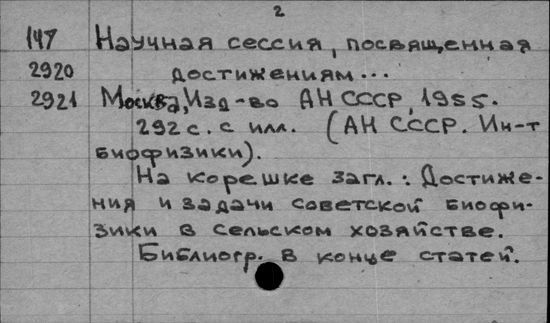 2
147 Научная сессия, посвященная
2920 достижениям...
2921 Москва, Изд-во АН СССР, 1955.
292 с. с илл. (АН СССР. Ин-т
биофизики).
На корешке загл.: Достиже-
ния и задачи советской биофи-
зики в сельском хозяйстве.
Библиогр. в конце статей.